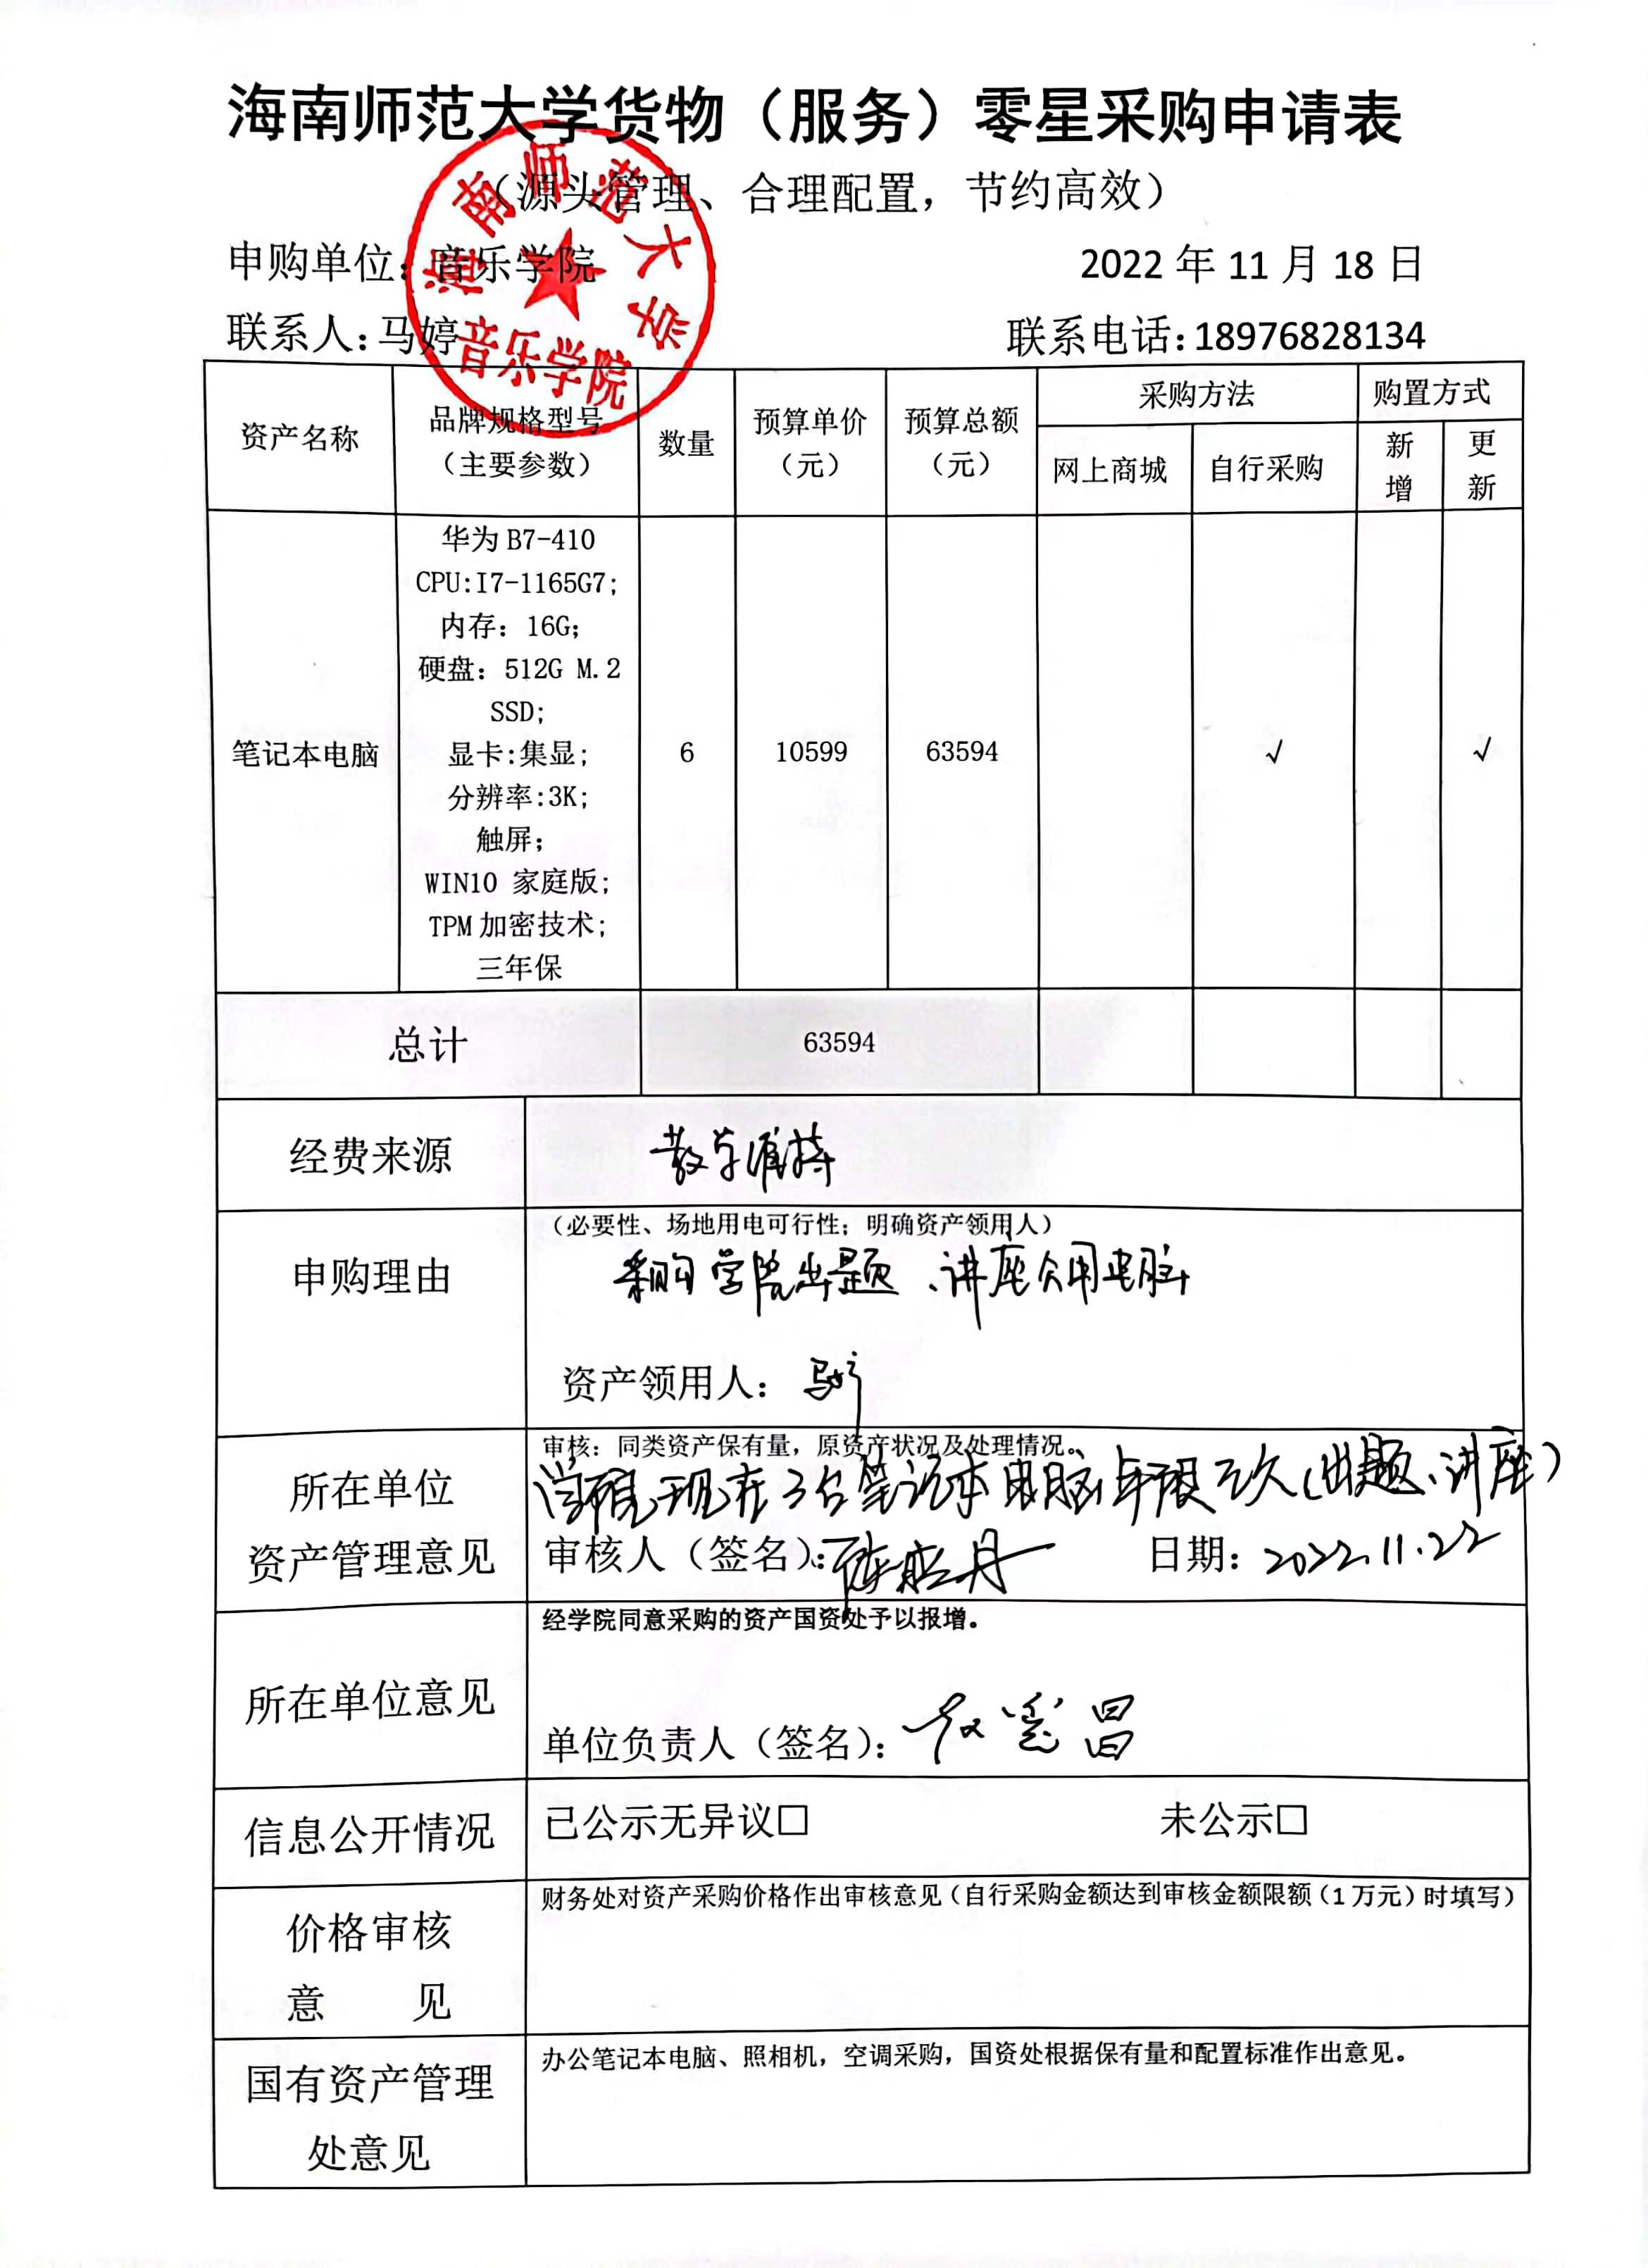 海南师范大学货物（服务）零星采购申请表
（源头管理、合理配置，节约高效）
申购单位：音乐学院 2022 年 11 月 18 日
联系人：马婷 联系电话：18976828134
海南师范大学
音乐学院
资产名称 品牌规格型号（主要参数） 数量 预算单价（元） 预算总额（元） 采购方法 购置方式
网上商城 自行采购 新增 更新
华为 B7-410
CPU:I7-1165G7;
内存：16G;
硬盘：512G M.2
SSD;
笔记本电脑 显卡:集显; 6 10599 63594 √ √
分辨率:3K;
触屏;
WIN10 家庭版;
TPM 加密技术;
三年保
总计 63594
经费来源 教学维持
（必要性、场地用电可行性；明确资产领用人）
申购理由 采购学院出题、讲座公用电脑
资产领用人：马婷
审核：同类资产保有量，原资产状况及处理情况。
所在单位 学院现有3台笔记本电脑（出题、讲座）
资产管理意见 审核人（签名）： 日期：2022.11.22
经学院同意采购的资产国资处予以报增。
所在单位意见
单位负责人（签名）：
信息公开情况 已公示无异议□ 未公示□
财务处对资产采购价格作出审核意见（自行采购金额达到审核金额限额（1 万元）时填写）
价格审核
意 见
办公笔记本电脑、照相机，空调采购，国资处根据保有量和配置标准作出意见。
国有资产管理
处意见